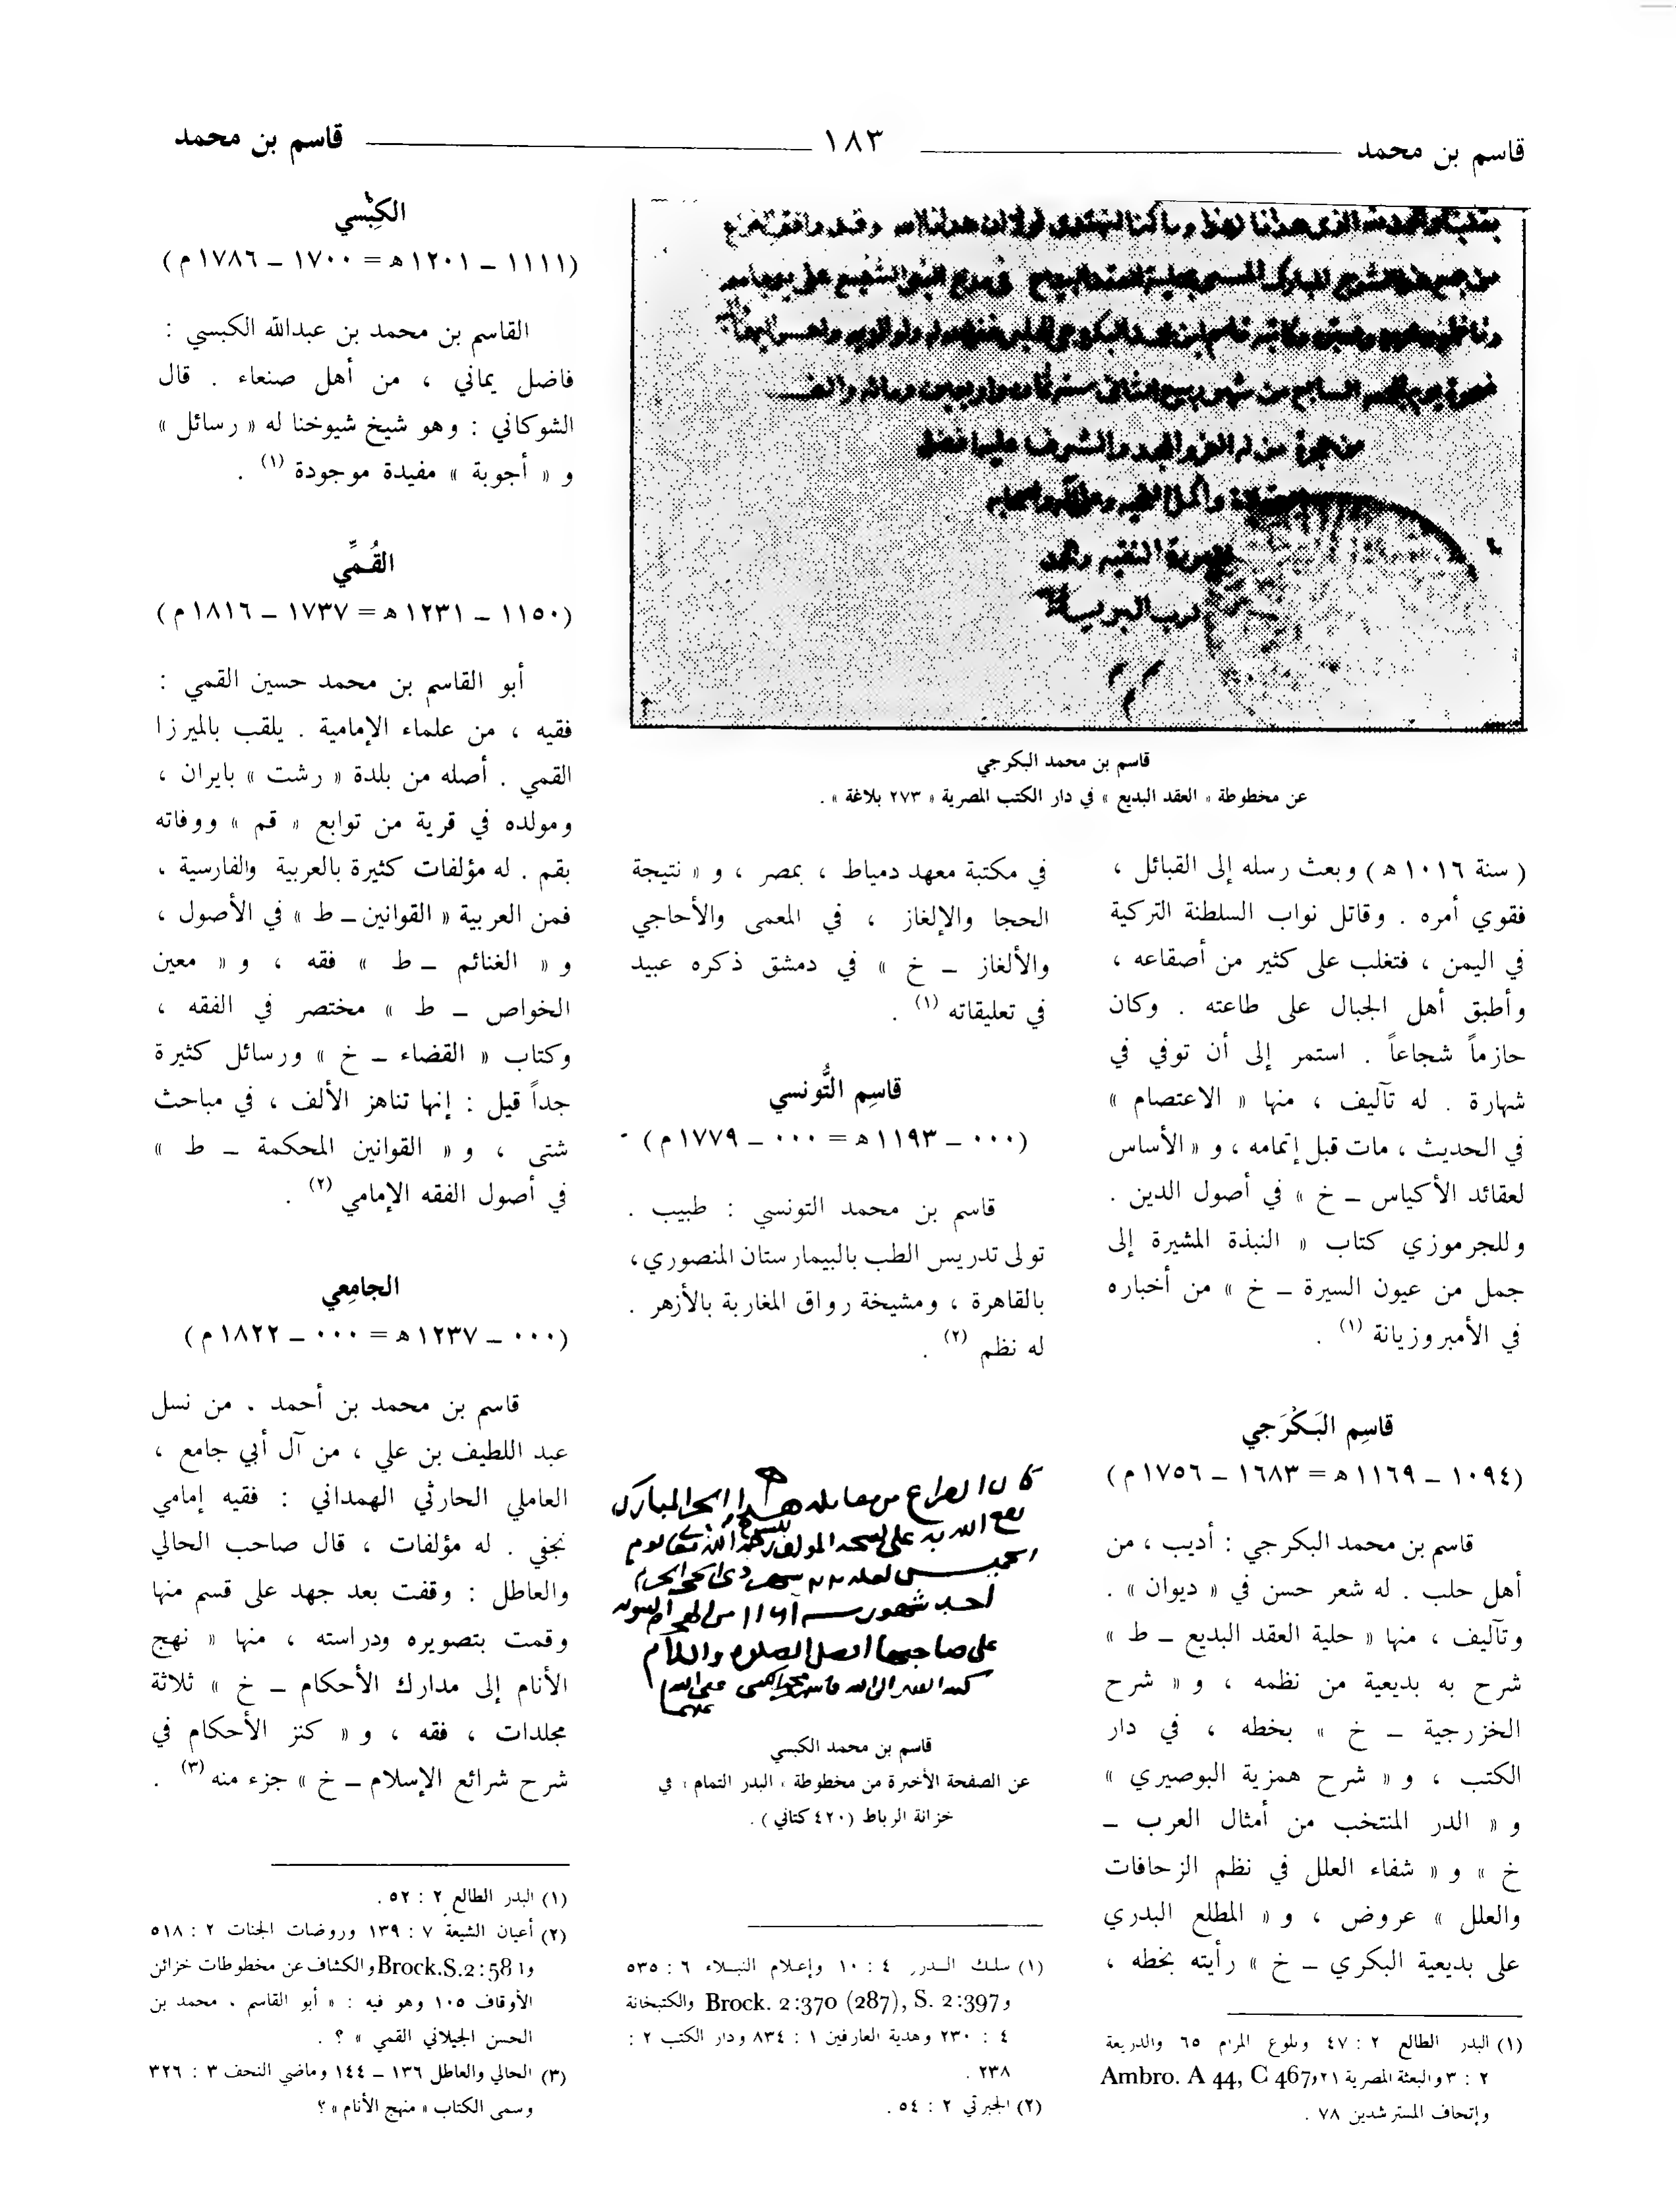 قاسم بن محمد
١٨٣
قاسم بن محمد
قاسم بن محمد البكرجي
عن مخطوطة « العقد البديع » في دار الكتب المصرية « ٢٧٣ بلاغة » .
( سنة ١٠١٦ هـ ) وبعث رسله إلى القبائل ،
فقوي أمره . وقاتل نواب السلطنة التركية
في اليمن ، فتغلب على كثير من أصقاعه ،
وأطبق أهل الجبال على طاعته . وكان
حازماً شجاعاً . استمر إلى أن توفي في
شهارة . له تآليف ، منها « الاعتصام »
في الحديث ، مات قبل إتمامه ، و « الأساس
لعقائد الأكياس ــ خ » في أصول الدين .
وللجرموزي كتاب « النبذة المشيرة إلى
جمل من عيون السيرة ــ خ » من أخباره
في الأمبروزيانة (١) .
قاسِم البَكْرَجي
(١٠٩٤ ــ ١١٦٩ هـ = ١٦٨٣ ــ ١٧٥٦ م )
قاسم بن محمد البكرجي : أديب ، من
أهل حلب . له شعر حسن في « ديوان » .
وتآليف ، منها « حلية العقد البديع ــ ط »
شرح به بديعية من نظمه ، و « شرح
الخزرجية ــ خ » بخطه ، في دار
الكتب ، و « شرح همزية البوصيري »
و « الدر المنتخب من أمثال العرب ــ
خ » و « شفاء العلل في نظم الزحافات
والعلل » عروض ، و « المطلع البدري
على بديعية البكري ــ خ » رأيته بخطه ،
(١) البدر الطالع ٢ : ٤٧ وبلوغ المرام ٦٥ والذريعة
٢ : ٣ والبعثة المصرية ٢١ و Ambro. A 44, C 467
وإتحاف المسترشدين ٧٨ .
في مكتبة معهد دمياط ، بمصر ، و « نتيجة
الحجا والإلغاز ، في المعمى والأحاجي
والألغاز ــ خ » في دمشق ذكره عبيد
في تعليقاته (١) .
قاسِم التُّونسي
(٠٠٠ ــ ١١٩٣ هـ = ٠٠٠ ــ ١٧٧٩ م )
قاسم بن محمد التونسي : طبيب .
تولى تدريس الطب بالبيمارستان المنصوري ،
بالقاهرة ، ومشيخة رواق المغاربة بالأزهر .
له نظم (٢) .
قاسم بن محمد الكبسي
عن الصفحة الأخيرة من مخطوطة « البدر التمام » في
خزانة الرباط (٤٢٠ كتاني ) .
(١) سلك الدرر ٤ : ١٠ وإعلام النبلاء ٦ : ٥٣٥
و Brock. 2:370 (287), S. 2:397 والكتبخانة
٤ : ٢٣٠ وهدية العارفين ١ : ٨٣٤ ودار الكتب ٢ :
٢٣٨ .
(٢) الجبرتي ٢ : ٥٤ .
الكِبْسي
(١١١١ ــ ١٢٠١ هـ = ١٧٠٠ ــ ١٧٨٦ م )
القاسم بن محمد بن عبدالله الكبسي :
فاضل يماني ، من أهل صنعاء . قال
الشوكاني : وهو شيخ شيوخنا له « رسائل »
و « أجوبة » مفيدة موجودة (١) .
القُمِّي
(١١٥٠ ــ ١٢٣١ هـ = ١٧٣٧ ــ ١٨١٦ م )
أبو القاسم بن محمد حسين القمي :
فقيه ، من علماء الإمامية . يلقب بالميرزا
القمي . أصله من بلدة « رشت » بايران ،
ومولده في قرية من توابع « قم » ووفاته
بقم . له مؤلفات كثيرة بالعربية والفارسية ،
فمن العربية « القوانين ــ ط » في الأصول ،
و « الغنائم ــ ط » فقه ، و « معين
الخواص ــ ط » مختصر في الفقه ،
وكتاب « القضاء ــ خ » ورسائل كثيرة
جداً قيل : إنها تناهز الألف ، في مباحث
شتى ، و « القوانين المحكمة ــ ط »
في أصول الفقه الإمامي (٢) .
الجامِعي
(٠٠٠ ــ ١٢٣٧ هـ = ٠٠٠ ــ ١٨٢٢ م )
قاسم بن محمد بن أحمد ، من نسل
عبد اللطيف بن علي ، من آل أبي جامع ،
العاملي الحارثي الهمداني : فقيه إمامي
نجفي . له مؤلفات ، قال صاحب الحالي
والعاطل : وقفت بعد جهد على قسم منها
وقمت بتصويره ودراسته ، منها « نهج
الأنام إلى مدارك الأحكام ــ خ » ثلاثة
مجلدات ، فقه ، و « كنز الأحكام في
شرح شرائع الإسلام ــ خ » جزء منه (٣) .
(١) البدر الطالع ٢ : ٥٢ .
(٢) أعيان الشيعة ٧ : ١٣٩ وروضات الجنات ٢ : ٥١٨
و Brock.S.2:581 والكشاف عن مخطوطات خزائن
الأوقاف ١٠٥ وهو فيه : « أبو القاسم ، محمد بن
الحسن الجيلاني القمي » ؟ .
(٣) الحالي والعاطل ١٣٦ ــ ١٤٤ وماضي النجف ٣ : ٣٢٦
وسمى الكتاب « منهج الأنام » ؟